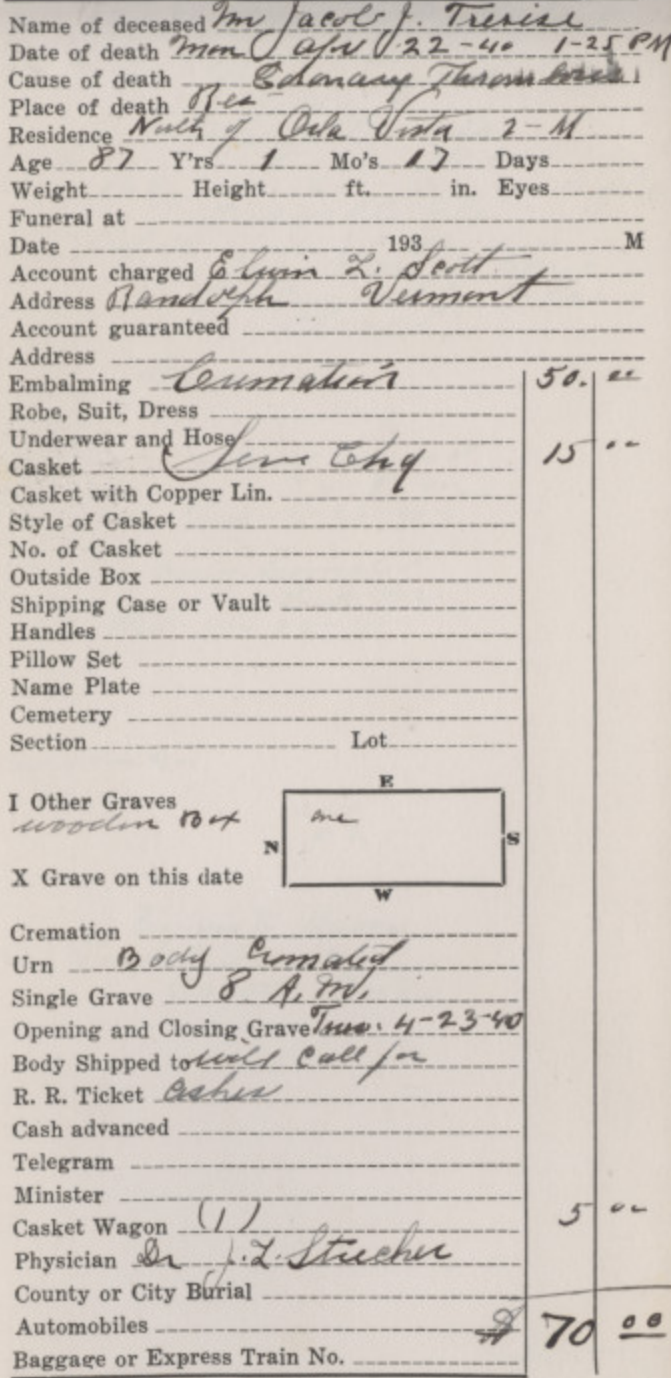 Name of deceased Mr Jacob J. Trevise
Date of death Mon Apr 22-40 1-25 PM
Cause of death Coronary Thrombosis
Place of death Res
Residence North of Orla Vista 2-M
Age 87 Y'rs 1 Mo's 17 Days
Weight Height ft. in. Eyes
Funeral at
Date 193 M
Account charged Elwin L. Scott
Address Randolph Vermont
Account guaranteed
Address
Embalming Cremation 50. 00
Robe, Suit, Dress
Underwear and Hose
Casket Serv Chg 15 00
Casket with Copper Lin.
Style of Casket
No. of Casket
Outside Box
Shipping Case or Vault
Handles
Pillow Set
Name Plate
Cemetery
Section Lot
E
I Other Graves
wooden Box one
N S
X Grave on this date
W
Cremation
Urn Body Cremated
Single Grave 8 A.M.
Opening and Closing Grave Tues. 4-23-40
Body Shipped to will call for
R. R. Ticket ashes
Cash advanced
Telegram
Minister
Casket Wagon (1) 5 00
Physician Dr J. L. Strecher
County or City Burial
Automobiles $ 70 00
Baggage or Express Train No.